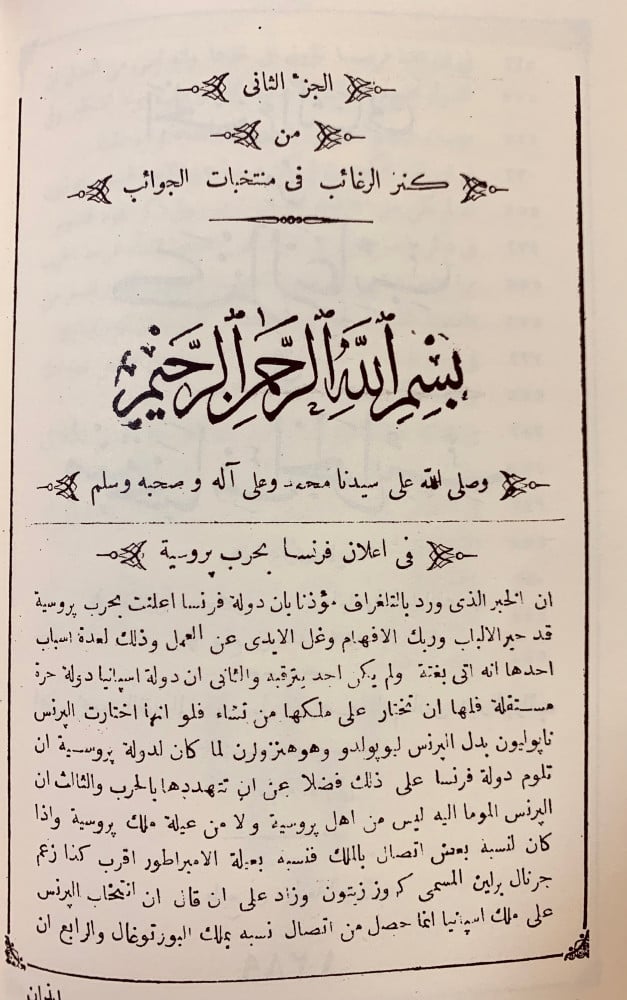 الجزء الثانى
من
كنز الرغائب فى منتخبات الجوائب
بسم الله الرحمن الرحيم
وصلى الله على سيدنا محمد وعلى آله وصحبه وسلم
فى اعلان فرنسا بحرب پروسية
ان الخبر الذى ورد بالتلغراف مؤذنا بان دولة فرنسا اعلنت بحرب پروسية
قد حير الالباب وربك الافهام وغل الايدى عن العمل وذلك لعدة اسباب
احدها انه اتى بغتة ولم يكن احد يترقبه والثانى ان دولة اسپانيا دولة حرة
مستقلة فلها ان تختار على ملكها من تشاء فلو انها اختارت البرنس
ناپوليون بدل البرنس ليوپولدو وهوهنزولرن لما كان لدولة پروسية ان
تلوم دولة فرنسا على ذلك فضلا عن ان تتهددها بالحرب والثالث ان
البرنس الموما اليه ليس من اهل پروسية ولا من عيلة ملك پروسية واذا
كان لنسبه بعض اتصال بالملك فنسبه بعيلة الامبراطور اقرب كذا زعم
جرنال برلين المسمى كروز زيتون وزاد على ان قال ان انتخاب البرنس
على ملك اسپانيا انما حصل من اتصال نسبه بملك البورتوغال والرابع ان